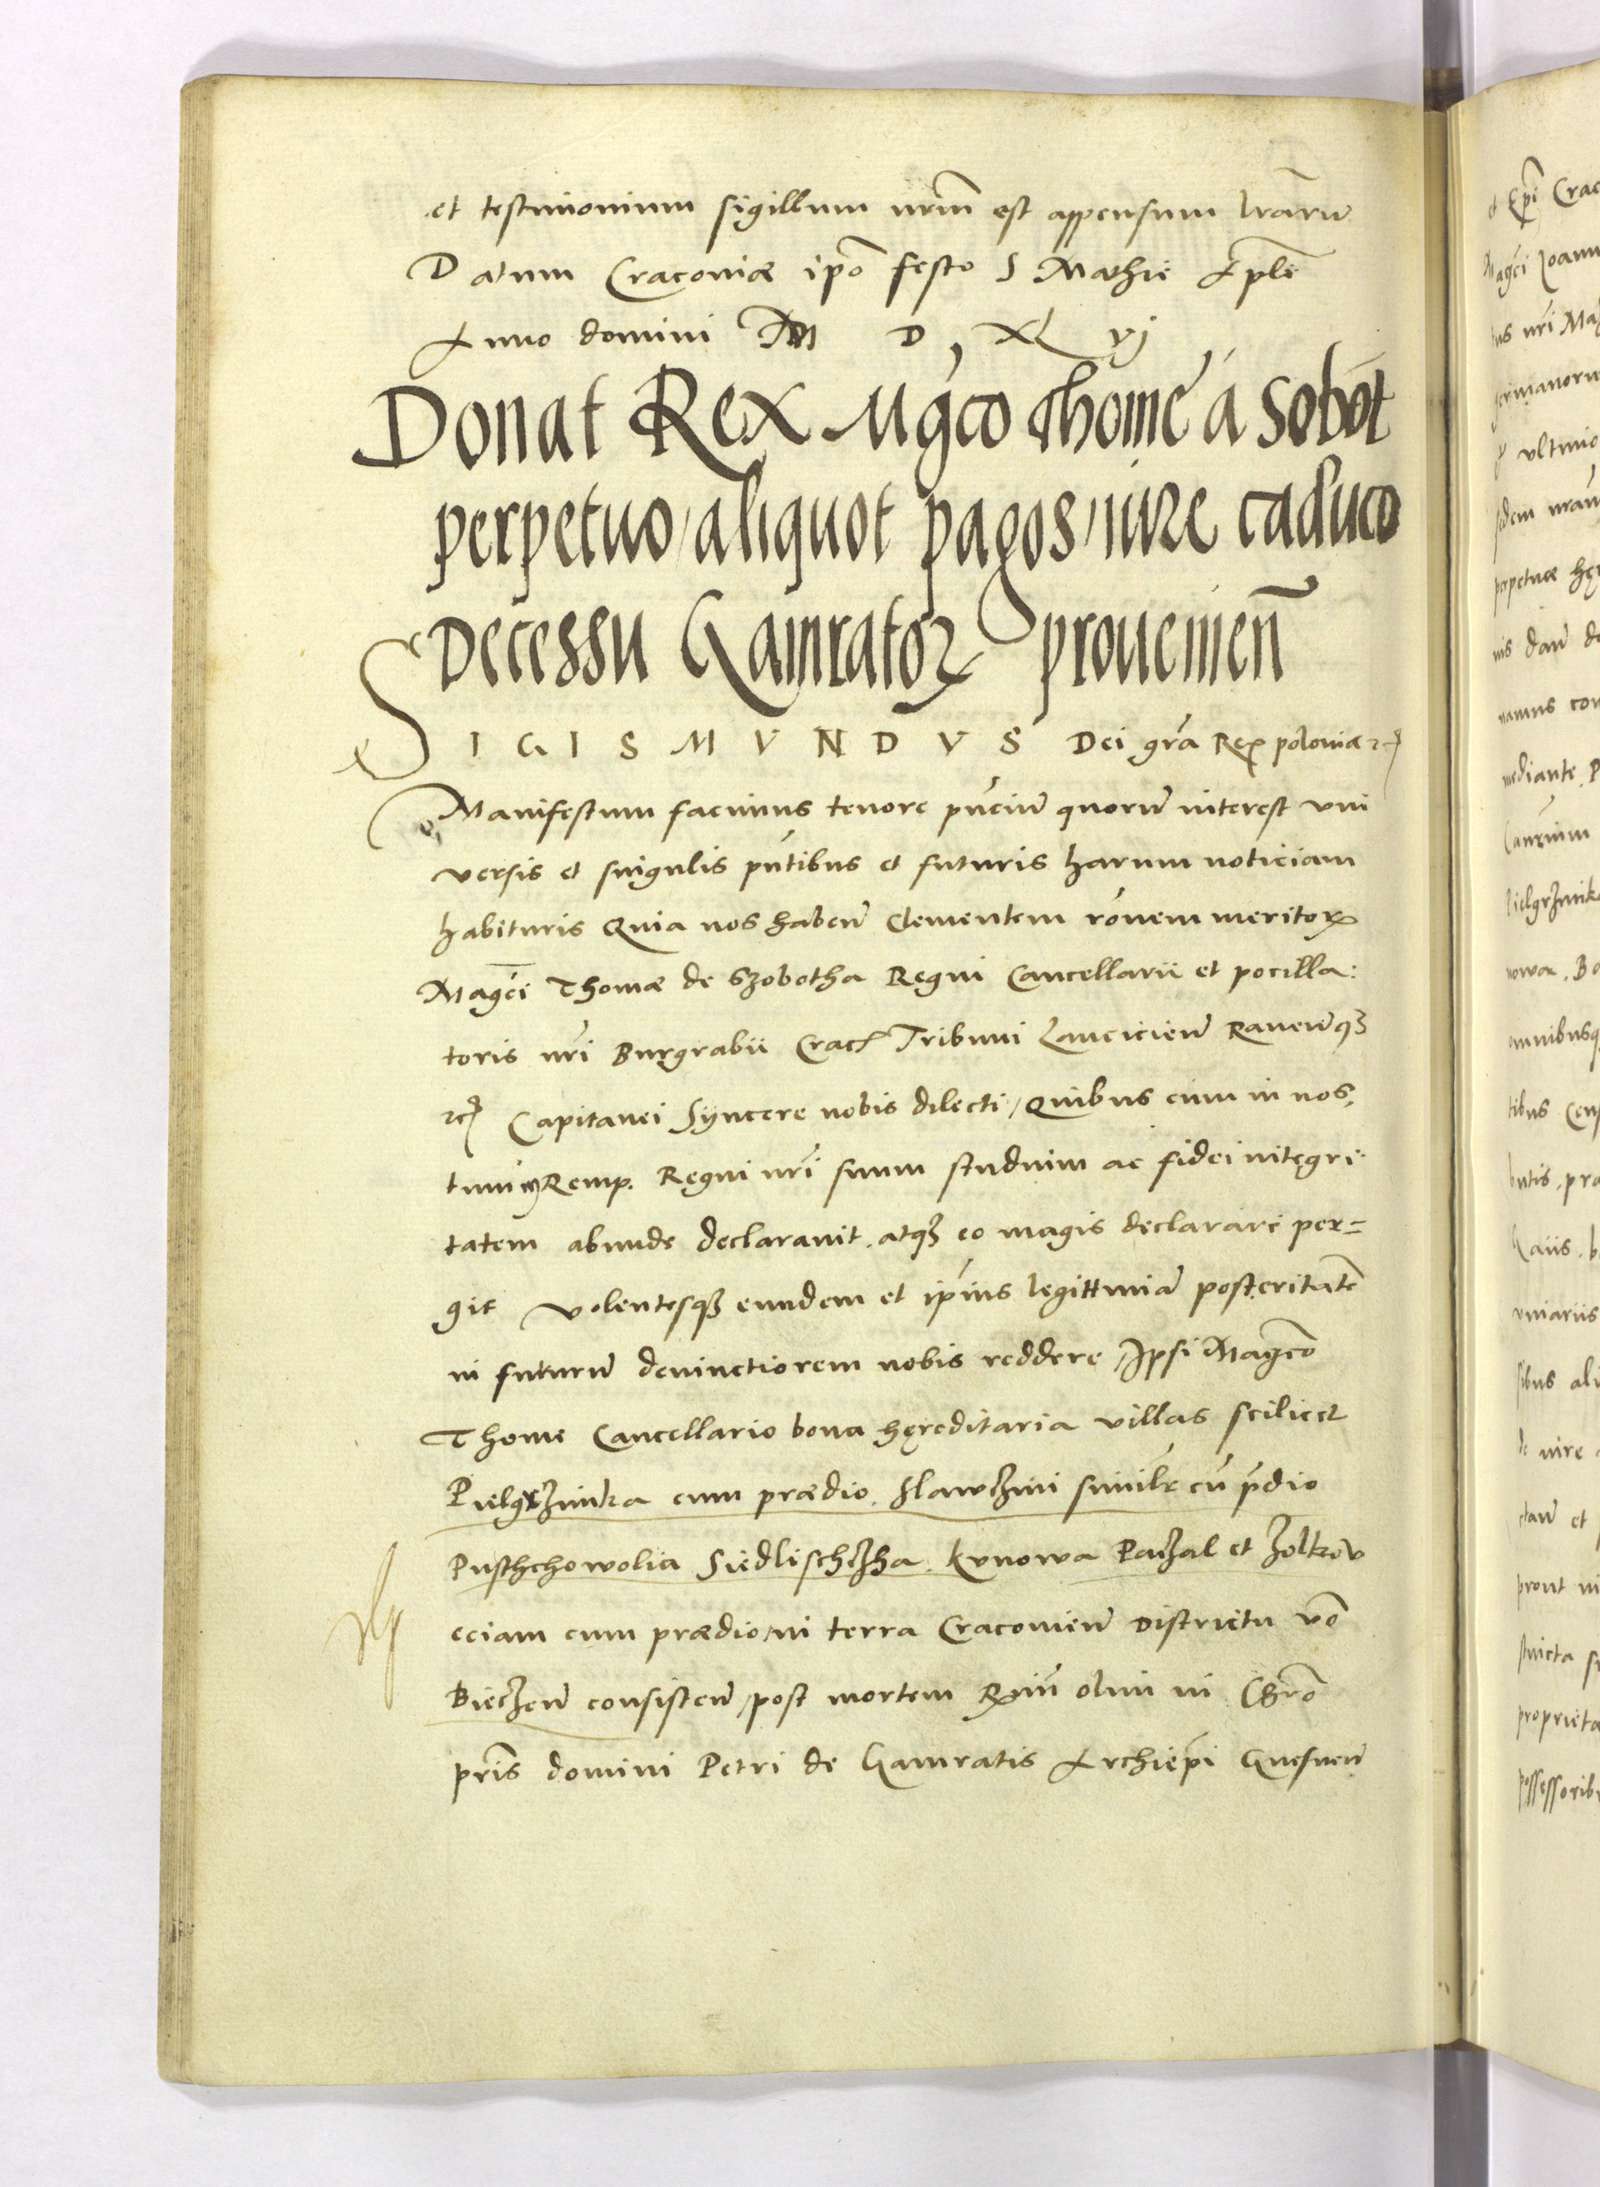 et testimonium sigillum nrm̃ est appensum lr̃arũ
Datum Cracoviæ ip̃o festo S Mathie Ap̃lĩ
Anno domini M D XL vj
Donat Rex Mg̃co Thomẽ a Sobot
perpetuo, aliquot pagos, iure caduco
Decessu Gamratoꝝ proueniẽn
SIGISMVNDVS Dei gr̃a Rex poloniæ ꝛc̃
Manifestum facimus tenore pñciũ quorũ interest vni
versis et singulis pñtibus et futuris harum noticiam
habituris Quia nos habeñ Clementem rõnem meritoꝝ
Mag̃ci Thomæ de Szobotha Regni Cancellarii et pocilla:
toris nr̃i Burgrabii Crac̃ Tribuni Lanciciẽn Raueñ qꝫ
ꝛc̃ Capitanei Syncere nobis dilecti, Quibus cum in nos,
tum in Remp. Regni nr̃i suum studium ac fidei integri:
tatem abunde declarauit, atqꝫ eo magis declarare per=
git volentesqꝫ eundem et ip̃ius legittimã posteritatẽ
in futurũ deuinctiorem nobis reddere, Ipsi Mag̃co
Thome Cancellario bona hęreditaria villas scilicet
Pielgrzimka cum prædio, Slawczini simile cũ p̃dio
Pusthchowolia Siedlischczha, kunowa Paczal et Zolkow
eciam cum prædio, in terra Cracouieñ Districtu võ
Bieczeñ consisteñ, post mortem Rm̃i olim in Chr̃o
pr̃is domini Petri de Gamratis Archiep̃i Gnesneñ
et Ep̃i Crac
Mag̃ci Joann
nr̃i Ma
germanoru
ultimo
perpetuæ hę
mediante
omnibusq
de iure
prout in
proprieta
possessorib